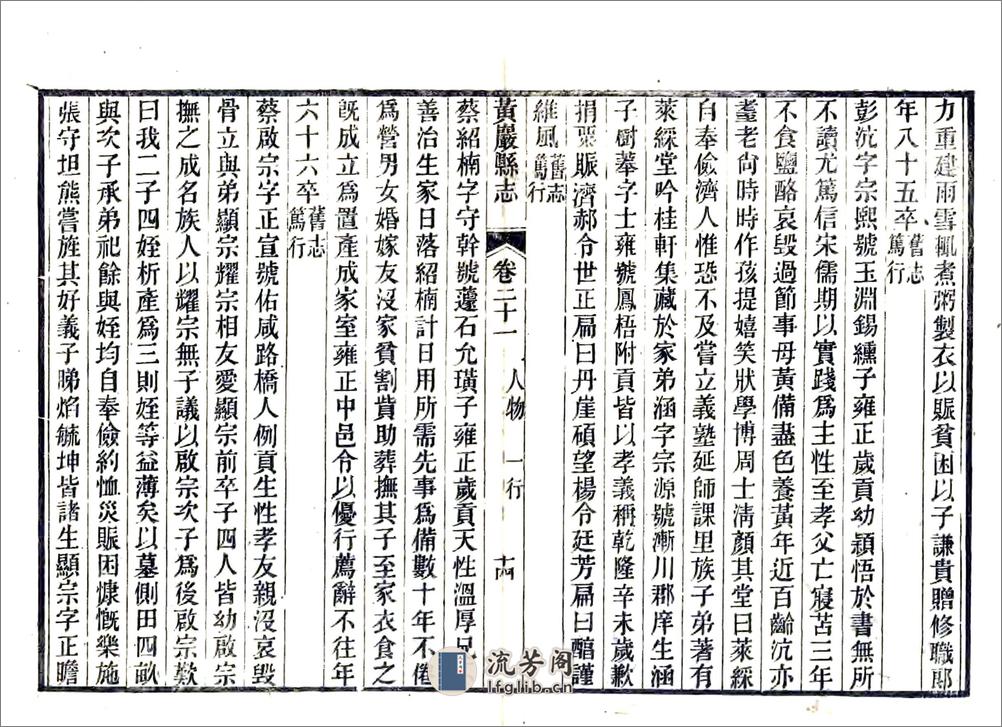 力重建雨雪輒煮粥製衣以賑貧困以子謙貴贈修職郎
年八十五卒舊志篤行
彭沆字宗熙號玉淵錫纁子雍正歲貢幼穎悟於書無所
不讀尤篤信宋儒期以實踐爲主性至孝父亡寢苫三年
不食鹽酪哀毀過節事母黃備盡色養黃年近百齡沆亦
耋老尙時時作孩提嬉笑狀學博周士淸顏其堂曰萊綵
自奉儉濟人惟恐不及嘗立義塾延師課里族子弟著有
萊綵堂吟桂軒集藏於家弟涵字宗源號漸川郡庠生涵
子樹菶字士雍號鳳梧附貢皆以孝義稱乾隆辛未歲歉
捐粟賑濟郝令世正扁曰丹崖碩望楊令廷芳扁曰醇謹
維風舊志篤行
黃巖縣志
卷二十一 人物 一行 十四
蔡紹楠字守幹號薳石允璜子雍正歲貢天性溫厚兄
善治生家日落紹楠計日用所需先事爲備數十年不倦
爲營男女婚嫁友沒家貧割貲助葬撫其子至家衣食之
旣成立爲置產成家室雍正中邑令以優行薦辭不往年
六十六卒舊志篤行
蔡啟宗字正宣號佑咸路橋人例貢生性孝友親沒哀毀
骨立與弟顯宗耀宗相友愛顯宗前卒子四人皆幼啟宗
撫之成名族人以耀宗無子議以啟宗次子爲後啟宗歎
曰我二子四姪析產爲三則姪等益薄矣以墓側田四畝
與次子承弟祀餘與姪均自奉儉約恤災賑困慷慨樂施
張守坦熊嘗旌其好義子睇焰毓坤皆諸生顯宗字正瞻
流芳阁
lfglib.cn